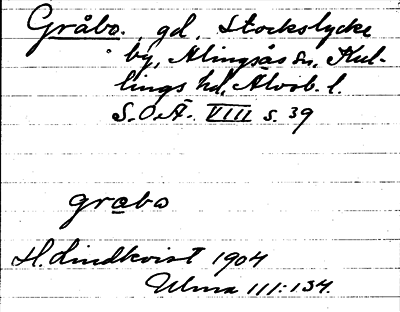 Gråbo. gd, Stockslycke
by, Alingsås sn, Kul-
lings hd, Älvsb. l.
S.O.Ä. VIII s. 39
grabo
H. Lindkvist 1904
Ulma 111:134.